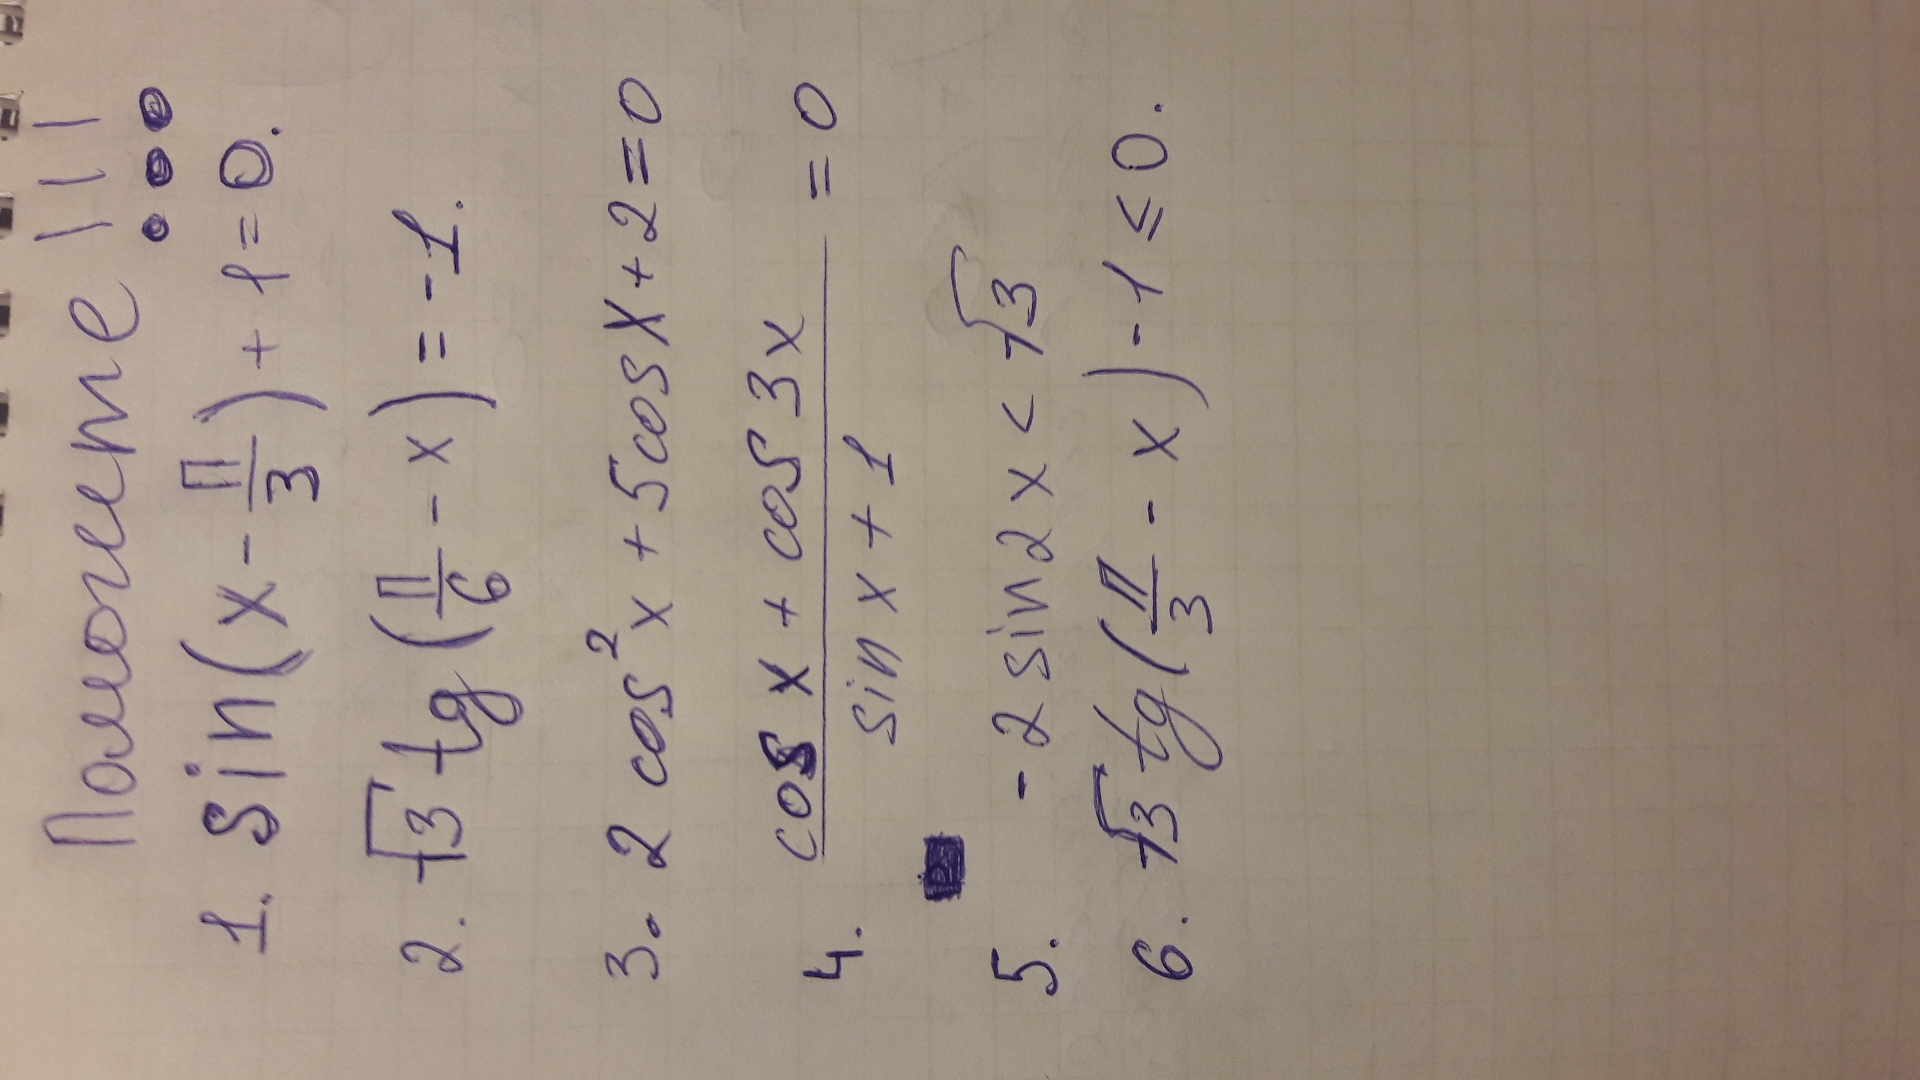 Помогите !!!
1. sin(x - π/3) + 1 = 0.
2. √3 tg(π/6 - x) = -1.
3. 2 cos² x + 5 cos x + 2 = 0
4. (cos x + cos 3x)/(sin x + 1) = 0
5. -2 sin 2x < √3
6. √3 tg(π/3 - x) - 1 ≤ 0.